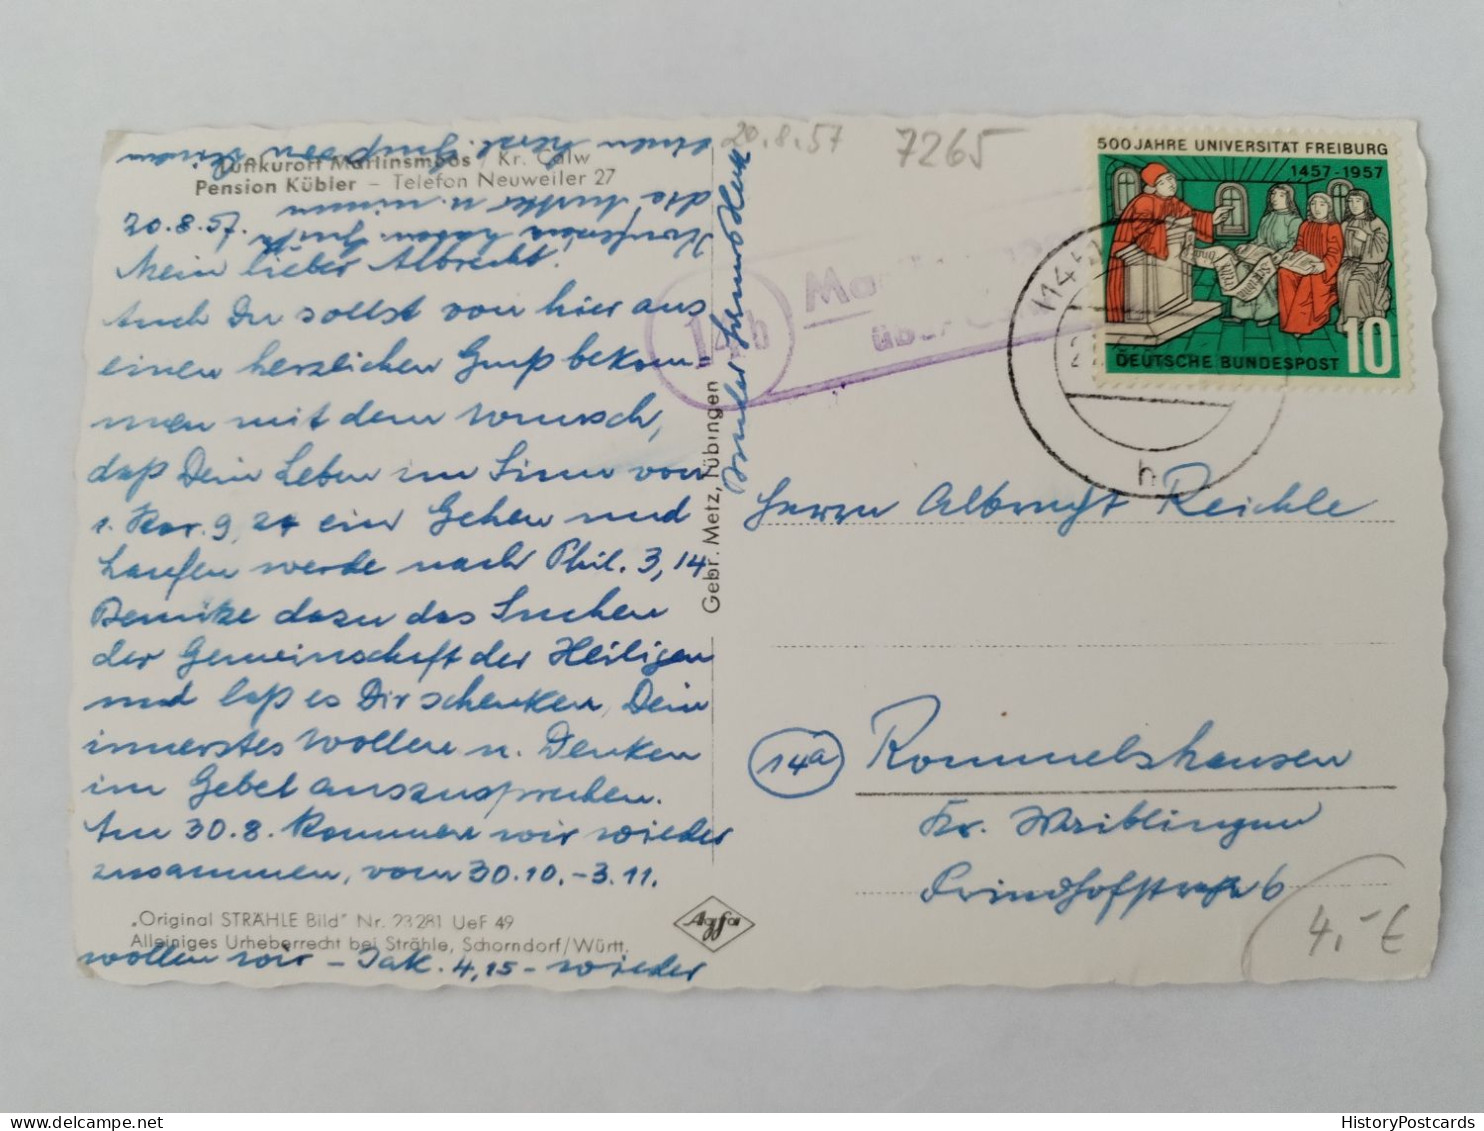 20.8.57
7265
Luftkurort Martinsmoos / Kr. Calw
Pension Kübler – Telefon Neuweiler 27
20.8.57.
Mein lieber Albrecht!
Auch Du sollst von hier aus
einen herzlichen Gruß bekom=
men mit dem Wunsch,
daß Dein Leben im Sinn von
1. Kor. 9, 24 ein Gehen und
Laufen werde nach Phil. 3, 14
Benütze dazu das Suchen
der Gemeinschaft der Heiligen
und laß es Dir schenken, Dein
innerstes Wollen u. Denken
im Gebet auszusprechen.
Am 30.8. kommen wir wieder
zusammen, vom 30.10.-3.11.
wollen wir - Jak. 4,15 - wieder
Konferenz haben. Grüße
die Mutter u. nimm
einen herzl. Gruß von Deinem
Bruder
„Original STRÄHLE Bild" Nr. 23281 UeF 49
Alleiniges Urheberrecht bei Strähle, Schorndorf/Württ.
Agfa
Gebr. Metz, Tübingen
14b
über
h
500 JAHRE UNIVERSITÄT FREIBURG
1457-1957
DEUTSCHE BUNDESPOST 10
Herrn Albrecht Reichle
14a Rommelshausen
Kr. Waiblingen
Friedhofstraße 6
4,-€
HistoryPostcards.com